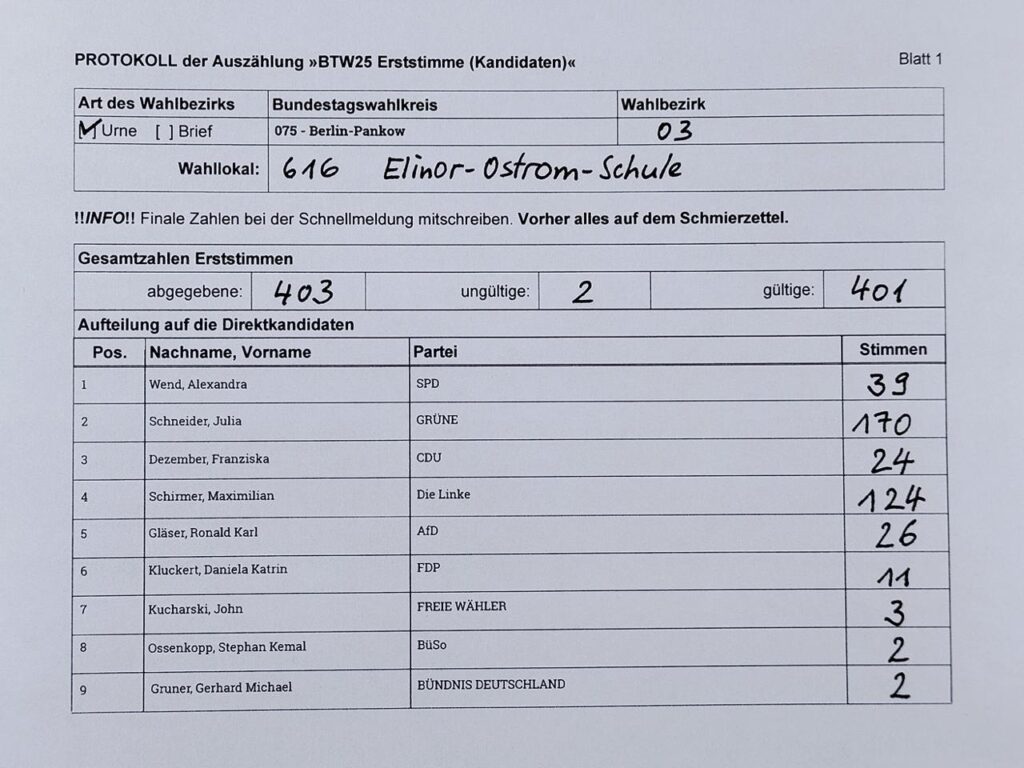 PROTOKOLL der Auszählung »BTW25 Erststimme (Kandidaten)« Blatt 1
Art des Wahlbezirks Bundestagswahlkreis Wahlbezirk
[✓] Urne [ ] Brief 075 - Berlin-Pankow 03
Wahllokal: 616 Elinor-Ostrom-Schule
!!INFO!! Finale Zahlen bei der Schnellmeldung mitschreiben. Vorher alles auf dem Schmierzettel.
Gesamtzahlen Erststimmen
abgegebene: 403 ungültige: 2 gültige: 401
Aufteilung auf die Direktkandidaten
Pos. Nachname, Vorname Partei Stimmen
1 Wend, Alexandra SPD 39
2 Schneider, Julia GRÜNE 170
3 Dezember, Franziska CDU 24
4 Schirmer, Maximilian Die Linke 124
5 Gläser, Ronald Karl AfD 26
6 Kluckert, Daniela Katrin FDP 11
7 Kucharski, John FREIE WÄHLER 3
8 Ossenkopp, Stephan Kemal BüSo 2
9 Gruner, Gerhard Michael BÜNDNIS DEUTSCHLAND 2